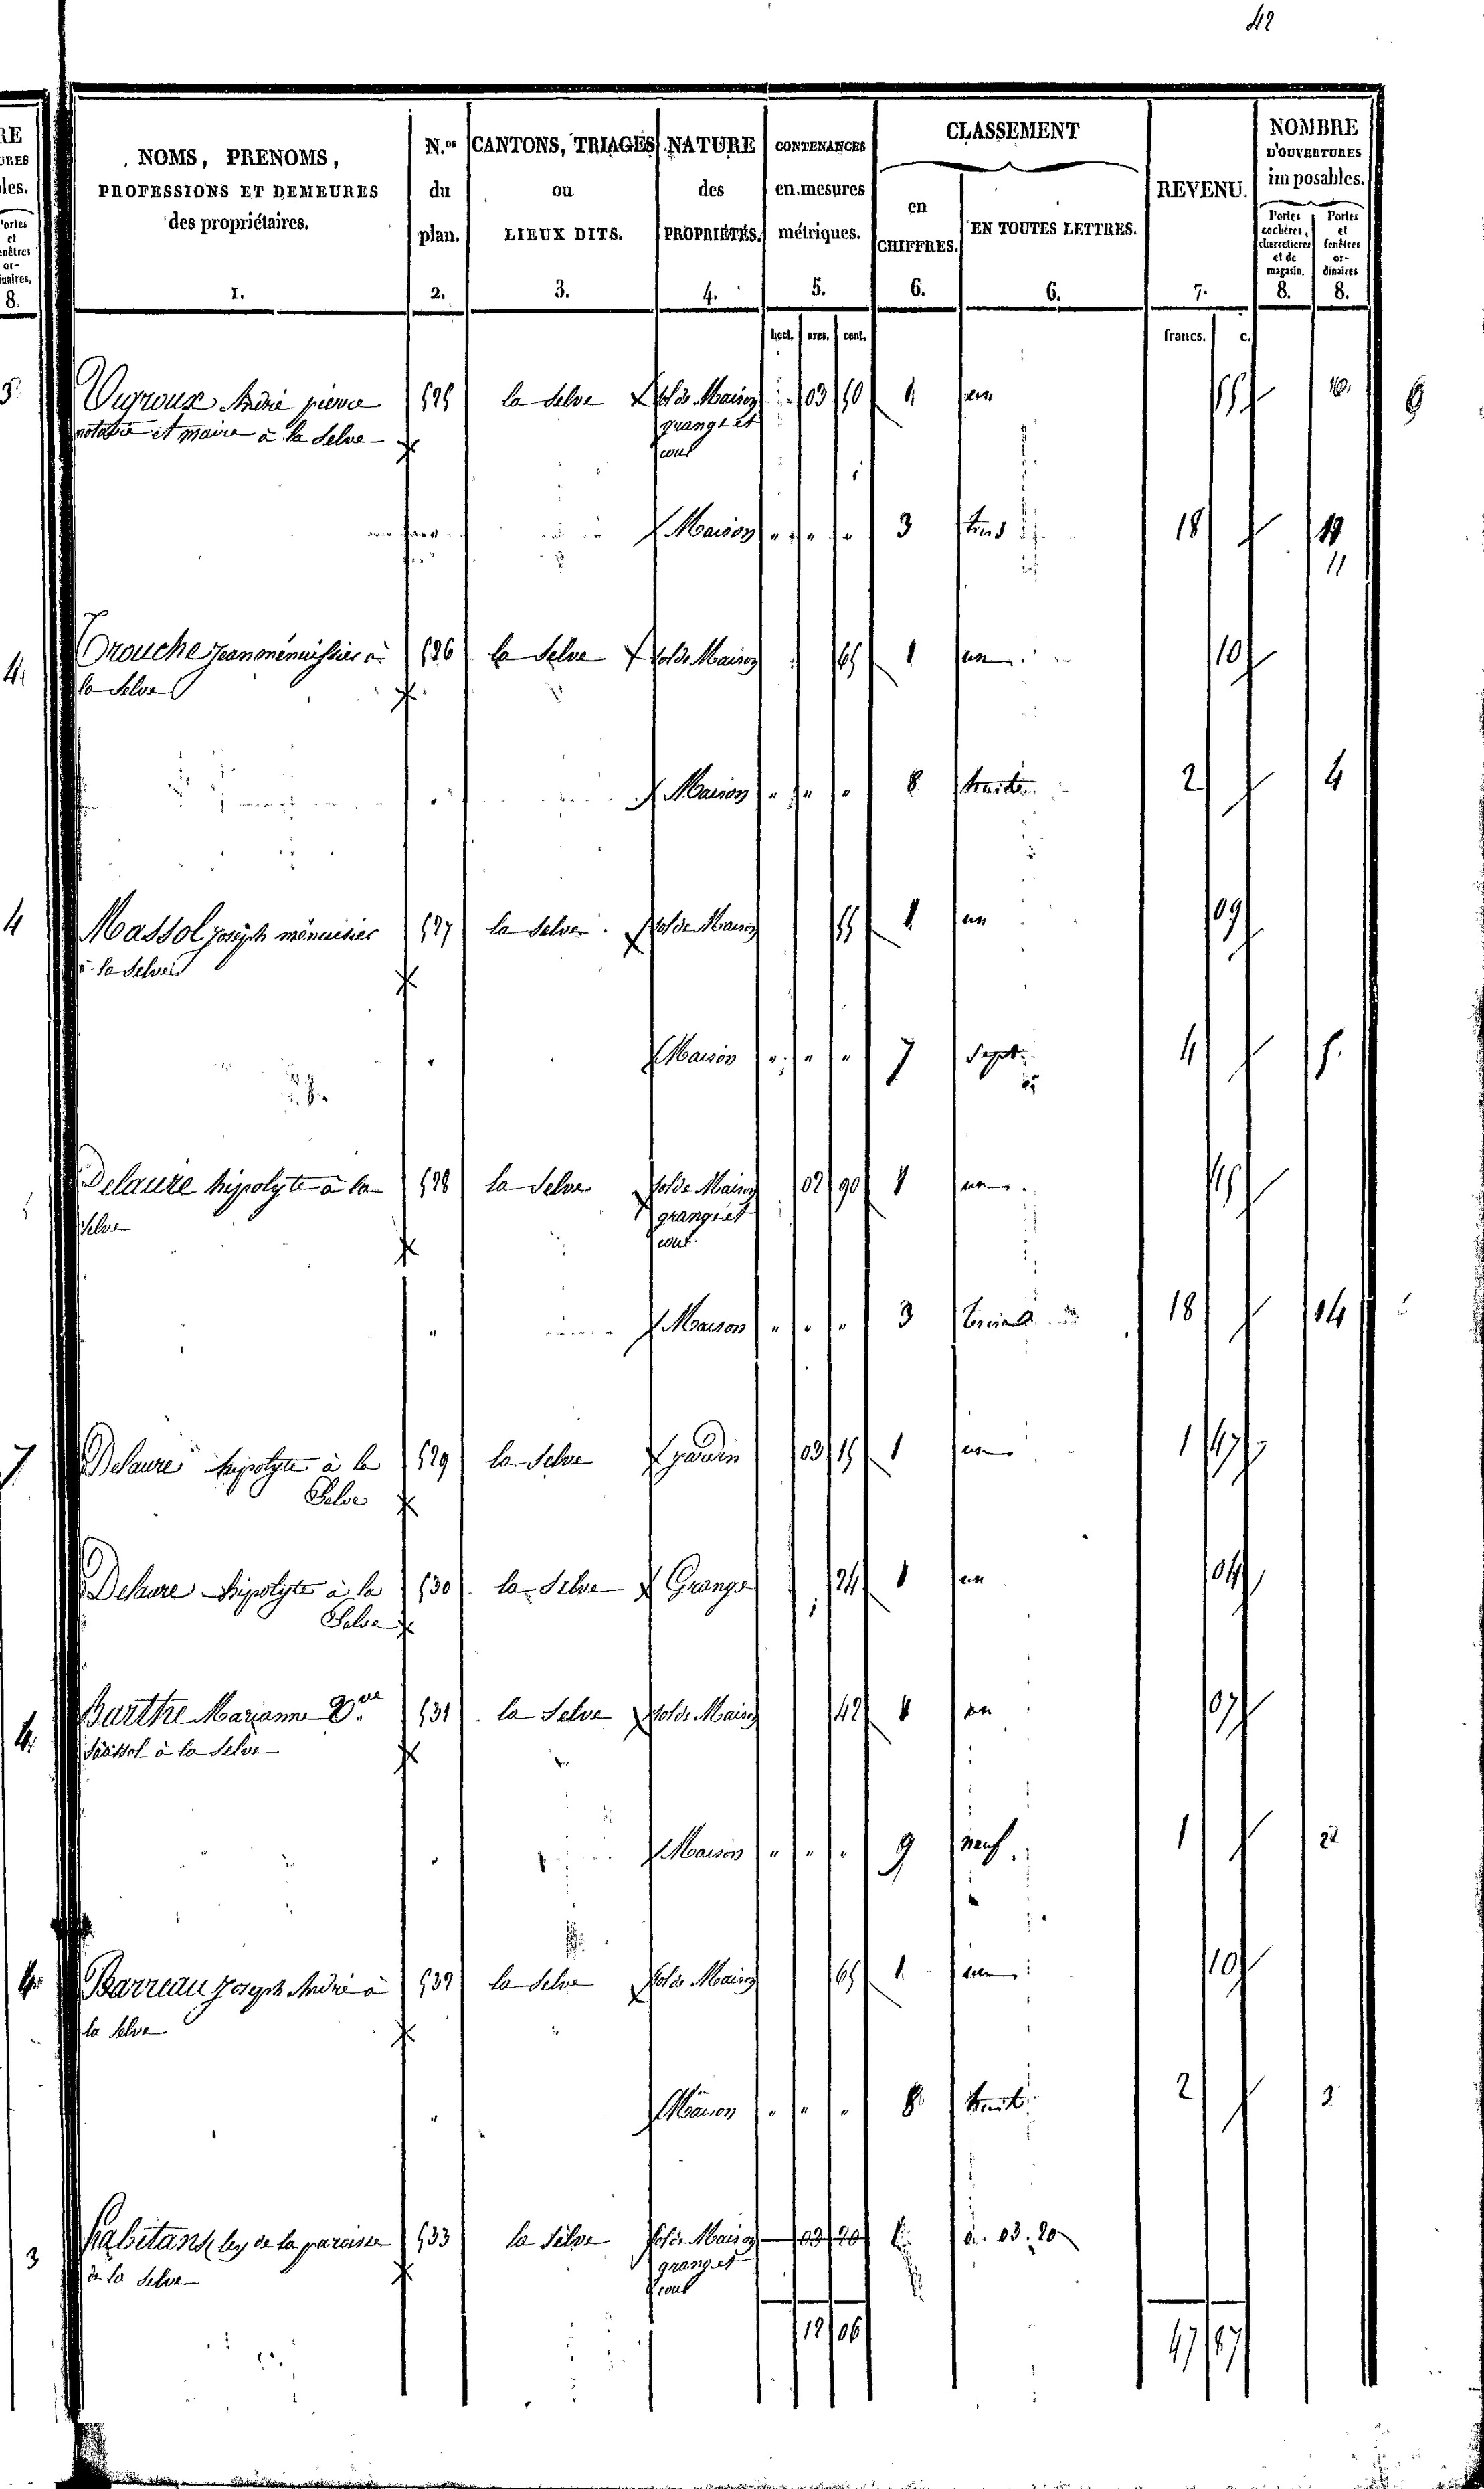 42
NOMS, PRENOMS, PROFESSIONS ET DEMEURES des propriétaires. 1.
N.os du plan. 2.
CANTONS, TRIAGES ou LIEUX DITS. 3.
NATURE des PROPRIÉTÉS. 4.
CONTENANCES en mesures métriques. 5.
CLASSEMENT
en CHIFFRES. 6.
EN TOUTES LETTRES. 6.
REVENU. 7.
NOMBRE D'OUVERTURES imposables.
Portes cochères, charretieres et de magasin. 8.
Portes et fenêtres ordinaires 8.
hect. ares. cent. francs. c.
André pierre 525 la Selve sol de Maison 03 50 1 un 55
notaire et maire à la Selve grange et
cour
Maison " " " 3 trois 18 11
Trouche Jean ménuissier à 526 la Selve sol de Maison 65 1 un 10
la Selve
" Maison " " " 8 huit 2 4
Massol joseph ménuisier 527 la Selve sol de Maison 55 1 un 09
à la Selve
" Maison " " " 7 Sept 4 5
Delaure hippolyte à la 528 la Selve sol de Maison 02 90 1 un 45
Selve grange et
cour
" Maison " " " 3 trois 18 14
Delaure hipolyte à la 529 la Selve jardin 03 15 1 un 1 47
Selve
Delaure hipolyte à la 530 la Selve Grange 24 1 un 04
Selve
Barthe Marianne Vve 531 la Selve sol de Maison 42 1 un 07
à la Selve
" Maison " " " 9 neuf 1
Barreau Joseph André à 532 la Selve sol de Maison 65 1 un 10
la Selve
" Maison " " " 8 huit 2 3
habitans les de la paroisse 533 la Selve sol de Maison 03 20 03.20
de la Selve grange et
cour
12 06 47 87